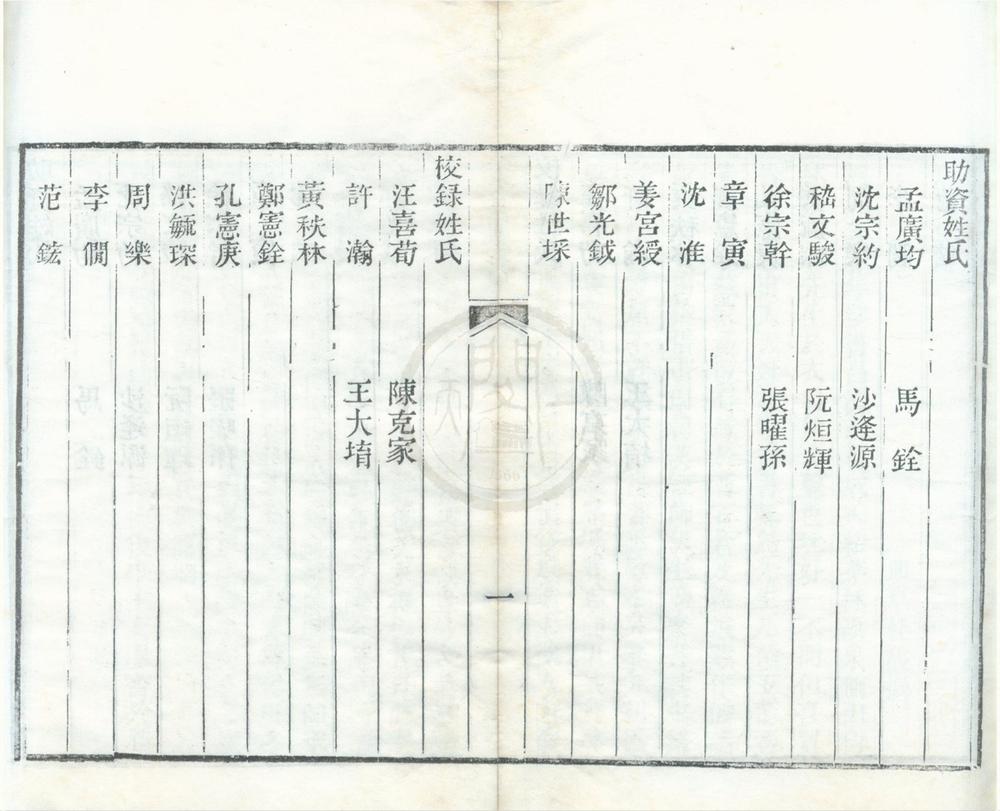 助資姓氏
孟廣均　馬　銓
沈宗約　沙逢源
嵇文駿　阮烜輝
徐宗幹　張曜孫
章　寅
沈　淮
姜宮綬
鄒光鉞
世埰
一
校録姓氏
汪喜荀　陳克家
許　瀚　王大堉
黃秩林
鄭憲銓
孔憲庚
洪毓琛
周　樂
李　僩
范　鉉